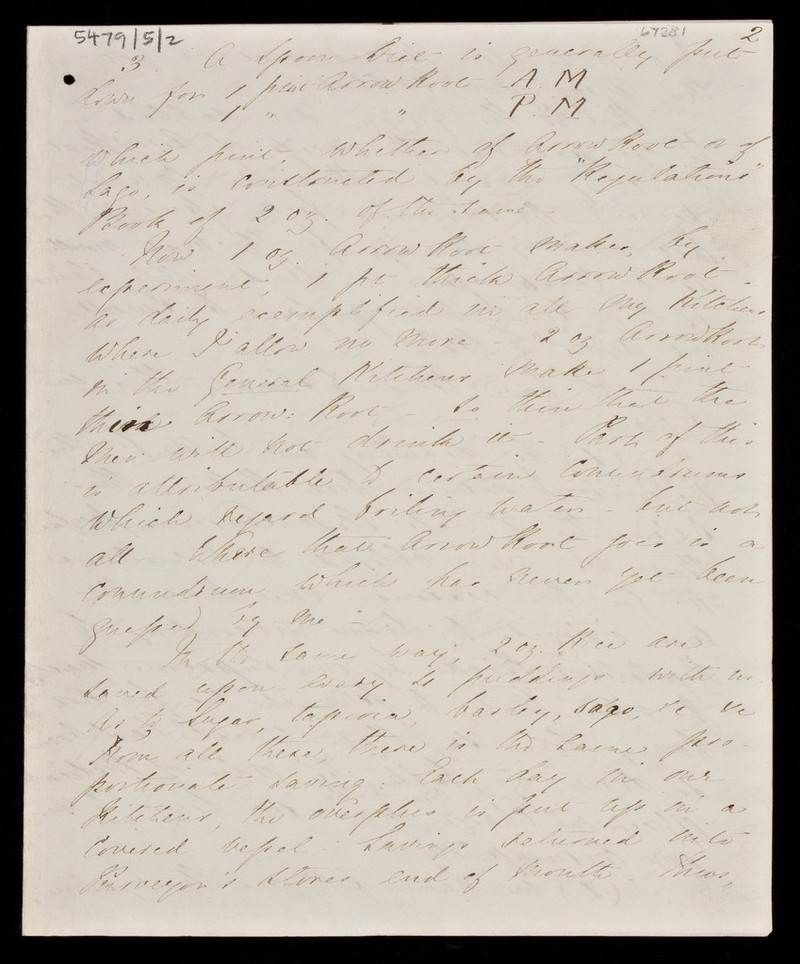 5479/5/2
67281 2
3 A Spoon Diet is generally put
down for 1 pint Arrow Root A. M
1 " " P. M
which pint, whether of Arrow Root or of
Sago, is constructed by the "Regulations"
Book of 2 oz. of the same -
Now 1 oz. Arrow Root makes, by
experiment, 1 pt thick Arrow Root
as daily exemplified in all my Kitchens
where I allow no more - 2 oz Arrow Root
in the General Kitchens make 1 pint
thin Arrow: Root - so thin that the
Men will not drink it - Part of this
is attributable to certain Conundrums
which regard boiling water - but not
all Where that Arrow Root goes is a
conundrum which has never yet been
guessed by me -
In the same way, 2 oz. Rice are
saved upon every puddings with us
As to Sugar, tapioca, barley, sago, &c &c
From all these, there is the same pro
portionate saving: Each day in our
Kitchens, the overplus is put up in a
covered vessel. Savings returned into
Purveyor's Stores end of month. Thus,